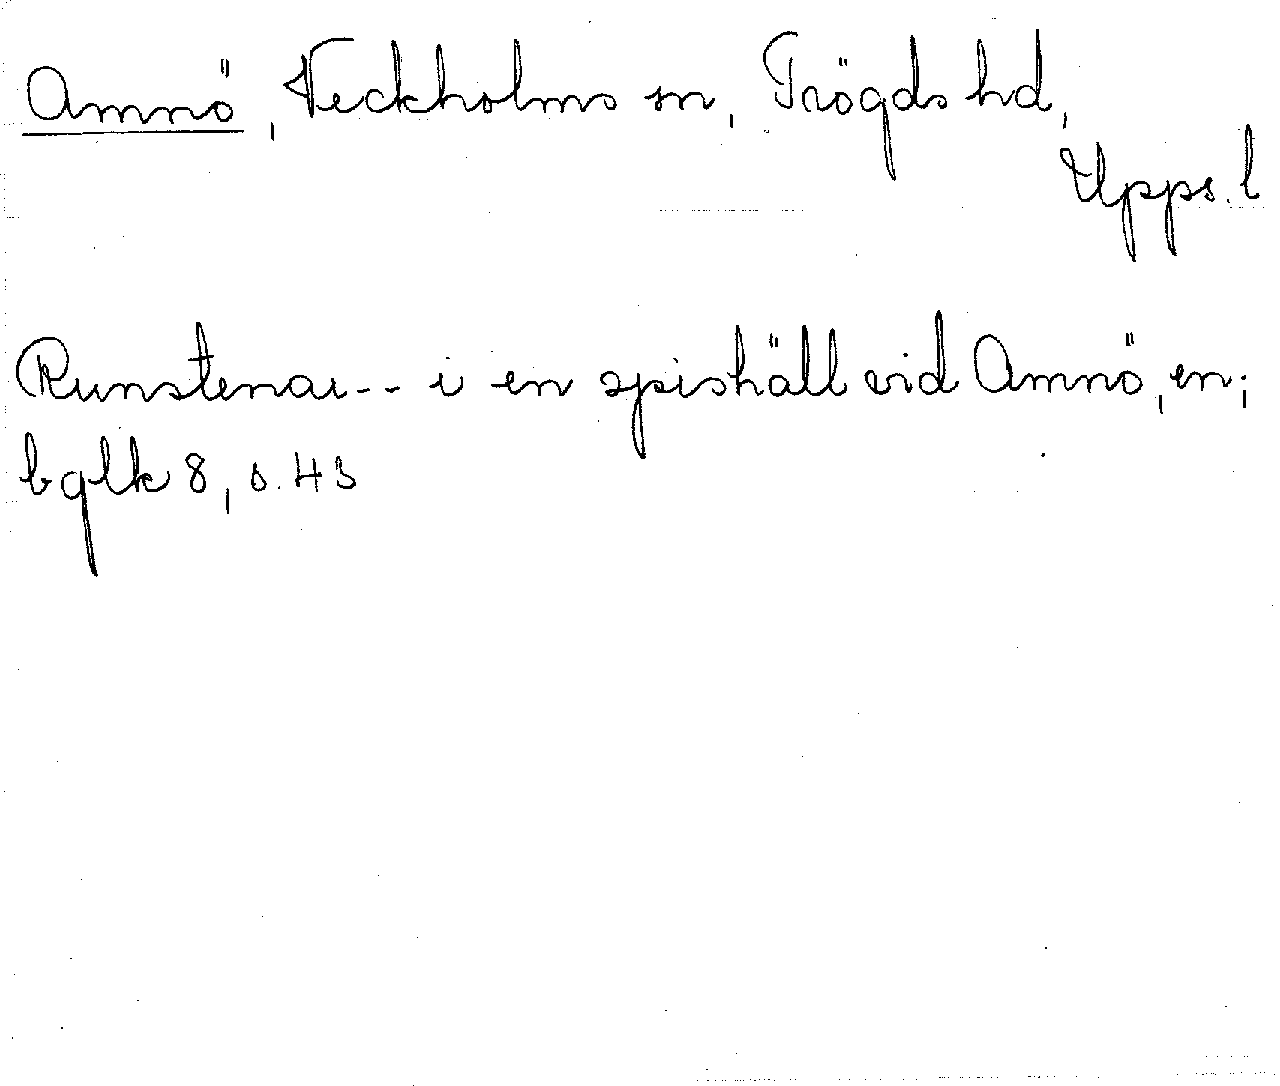 Amnö, Veckholms sn, Trögds hd,
Upps. l
Runstenar -- i en spishäll vid Amnö, en;
bglk 8, s. 43